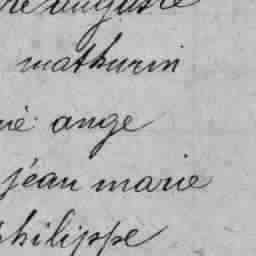 auguste
mathurin
ange
jéan marie
philippe